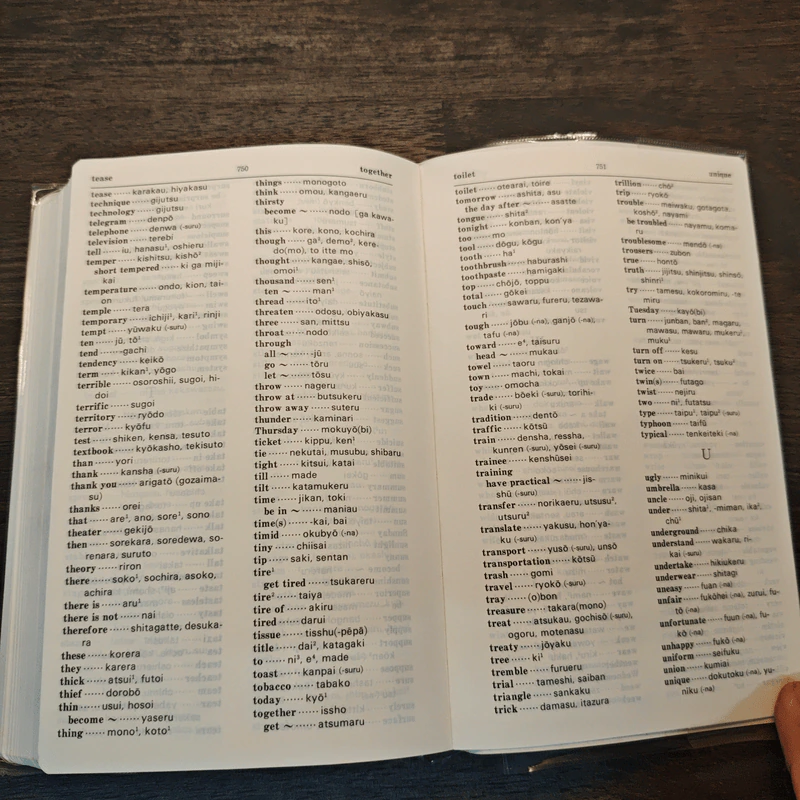 tease
750
together
tease ······ karakau, hiyakasu
technique ······ gijutsu
technology ······ gijutsu
telegram ······ denpō
telephone ······ denwa (-suru)
television ······ terebi
tell ······ iu, hanasu¹, oshieru
temper ······ kishitsu, kishō²
short tempered ······ ki ga miji-
kai
temperature ······ ondo, kion, tai-
on
temple ······ tera
temporary ······ ichiji¹, kari², rinji
tempt ······ yūwaku (-suru)
ten ······ jū, tō¹
tend ······ -gachi
tendency ······ keikō
term ······ kikan¹, yōgo
terrible ······ osoroshii, sugoi, hi-
doi
terrific ······ sugoi
territory ······ ryōdo
terror ······ kyōfu
test ······ shiken, kensa, tesuto
textbook ······ kyōkasho, tekisuto
than ······ yori
thank ······ kansha (-suru)
thank you ······ arigatō (gozaima-
su)
thanks ······ orei
that ······ are¹, ano, sore¹, sono
theater ······ gekijō
then ······ sorekara, soredewa, so-
renara, suruto
theory ······ riron
there ······ soko¹, sochira, asoko,
achira
there is ······ aru¹
there is not ······ nai
therefore ······ shitagatte, desuka-
ra
these ······ korera
they ······ karera
thick ······ atsui², futoi
thief ······ dorobō
thin ······ usui, hosoi
become ~ ······ yaseru
thing ······ mono¹, koto¹
things ······ monogoto
think ······ omou, kangaeru
thirsty
become ~ ······ nodo [ga kawa-
ku]
this ······ kore, kono, kochira
though ······ ga², demo², kere-
do(mo), to itte mo
thought ······ kangae, shisō,
omoi¹
thousand ······ sen¹
ten ~ ······ man¹
thread ······ ito²
threaten ······ odosu, obiyakasu
three ······ san, mittsu
throat ······ nodo
through
all ~ ······ -jū
go ~ ······ tōru
let ~ ······ tōsu
throw ······ nageru
throw at ······ butsukeru
throw away ······ suteru
thunder ······ kaminari
Thursday ······ mokuyō(bi)
ticket ······ kippu, ken¹
tie ······ nekutai, musubu, shibaru
tight ······ kitsui, katai
till ······ made
tilt ······ katamukeru
time ······ jikan, toki
be in ~ ······ maniau
time(s) ······ -kai, bai
timid ······ okubyō (-na)
tiny ······ chiisai
tip ······ saki, sentan
tire¹
get tired ······ tsukareru
tire² ······ taiya
tire of ······ akiru
tired ······ darui
tissue ······ tisshu(-pēpā)
title ······ dai², katagaki
to ······ ni³, e⁴, made
toast ······ kanpai (-suru)
tobacco ······ tabako
today ······ kyō¹
together ······ issho
get ~ ······ atsumaru
toilet
751
unique
toilet ······ otearai, toire
tomorrow ······ ashita, asu
the day after ~ ······ asatte
tongue ······ shita²
tonight ······ konban, kon'ya
too ······ mo
tool ······ dōgu, kōgu
tooth ······ ha¹
toothbrush ······ haburashi
toothpaste ······ hamigaki
top ······ chōjō, toppu
total ······ gōkei
touch ······ sawaru, fureru, tezawa-
ri
tough ······ jōbu (-na), ganjō (-na),
tafu (-na)
toward ······ e⁴, taisuru
head ~ ······ mukau
towel ······ taoru
town ······ machi, tokai
toy ······ omocha
trade ······ bōeki (-suru), torihi-
ki (-suru)
tradition ······ dentō
traffic ······ kōtsū
train ······ densha, ressha,
kunren (-suru), yōsei (-suru)
trainee ······ kenshūsei
training
have practical ~ ······ jis-
shū (-suru)
transfer ······ norikaeru, utsusu²,
utsuru²
translate ······ yakusu, hon'ya-
ku (-suru)
transport ······ yusō (-suru), unsō
transportation ······ kōtsū
trash ······ gomi
travel ······ ryokō (-suru)
tray ······ (o)bon
treasure ······ takara(mono)
treat ······ atsukau, gochisō (-suru),
ogoru, motenasu
treaty ······ jōyaku
tree ······ ki¹
tremble ······ furueru
trial ······ tameshi, saiban
triangle ······ sankaku
trick ······ damasu, itazura
trillion ······ chō²
trip ······ ryokō
trouble ······ meiwaku, gotagota,
koshō², nayami
be troubled ······ nayamu, koma-
ru
troublesome ······ mendō (-na)
trousers ······ zubon
true ······ hontō
truth ······ jijitsu, shinjitsu, shinsō,
shinri²
try ······ tamesu, kokoromiru, -te
miru
Tuesday ······ kayō(bi)
turn ······ junban, ban², magaru,
mawasu, mawaru, mukeru²,
muku¹
turn off ······ kesu
turn on ······ tsukeru², tsuku²
twice ······ bai
twin(s) ······ futago
twist ······ nejiru
two ······ ni¹, futatsu
type ······ taipu¹, taipu² (-suru)
typhoon ······ taifū
typical ······ tenkeiteki (-na)
U
ugly ······ minikui
umbrella ······ kasa
uncle ······ oji, ojisan
under ······ shita¹, -miman, ika²,
chū¹
underground ······ chika
understand ······ wakaru, ri-
kai (-suru)
undertake ······ hikiukeru
underwear ······ shitagi
uneasy ······ fuan (-na)
unfair ······ fukōhei (-na), zurui, fu-
tō (-na)
unfortunate ······ fuun (-na), fu-
kō (-na)
unhappy ······ fukō (-na)
uniform ······ seifuku
union ······ kumiai
unique ······ dokutoku (-na), yu-
niku (-na)